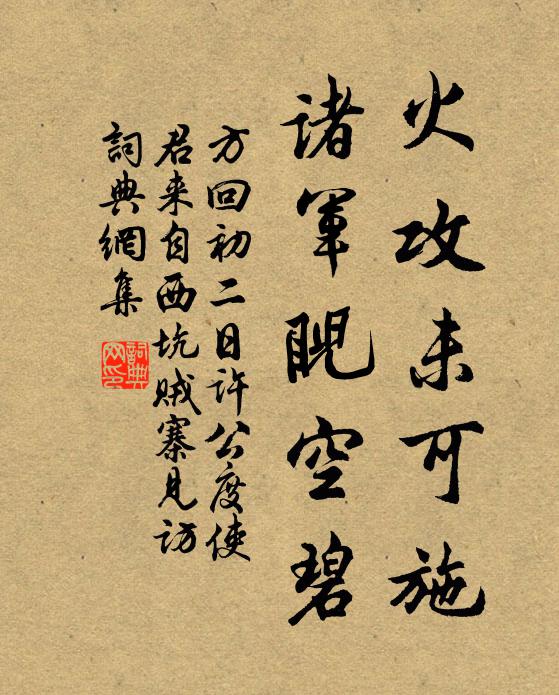 火攻未可施
諸軍睨空碧
方回初二日許公度使
君来自西坑贼寨見訪
詞典網集
詞典网印